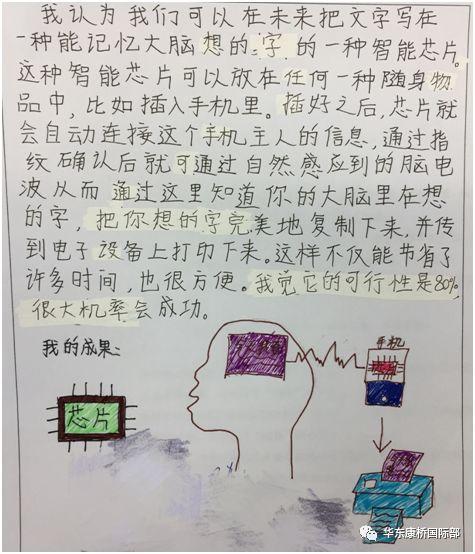 我认为我们可以在未来把文字写在
一种能记忆大脑想的字的一种智能芯片。
这种智能芯片可以放在任何一种随身物
品中，比如插入手机里。插好之后，芯片就
会自动连接这个手机主人的信息，通过指
纹确认后就可通过自然感应到的脑电
波从而通过这里知道你的大脑里在想
的字，把你想的字完美地复制下来，并传
到电子设备上打印下来。这样不仅能节省了
许多时间，也很方便。我觉它的可行性是80%，
很大机率会成功。
我的成果：
手机
芯片
华东康桥国际部